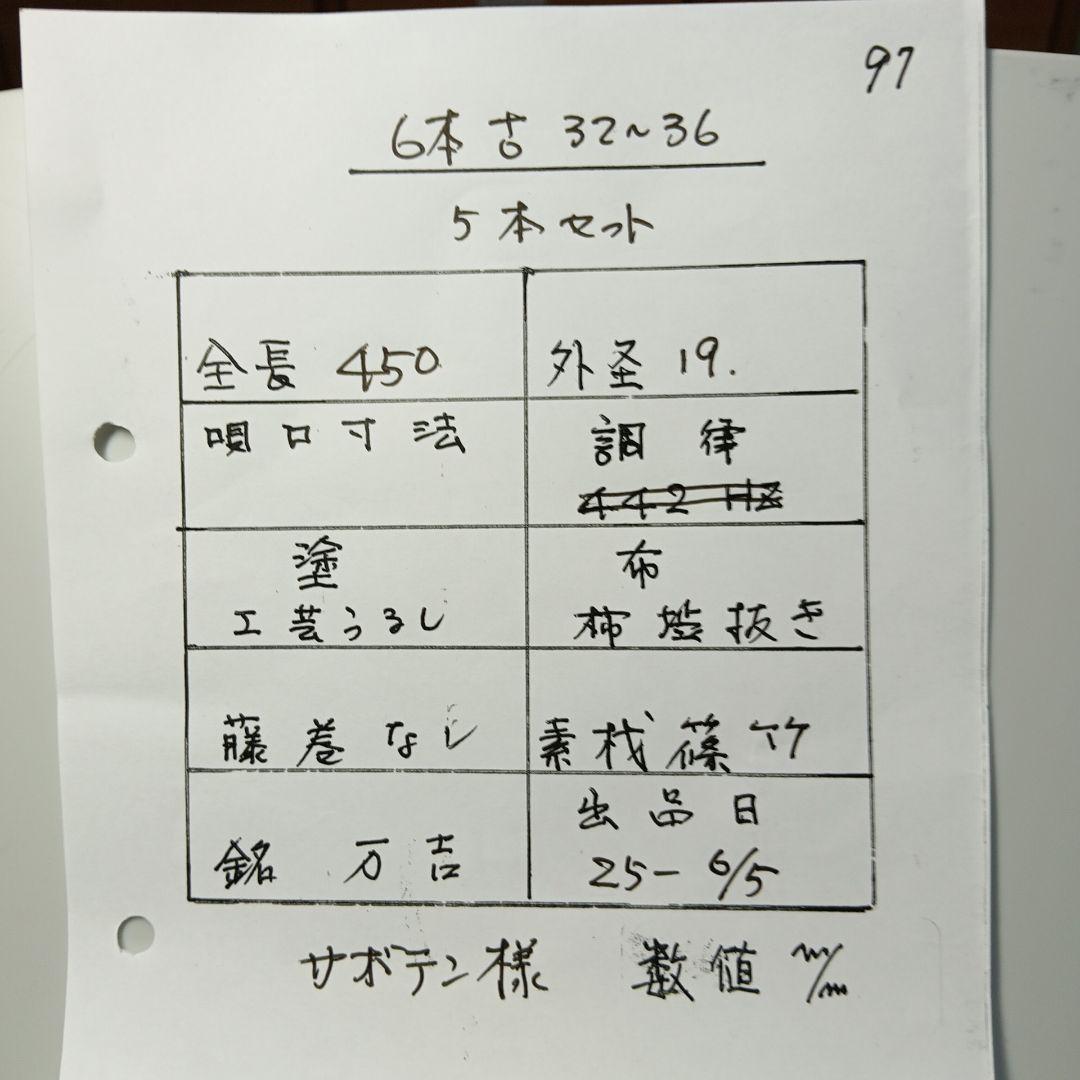 97
6本古 32~36
5本セット
全長 450
外径 19.
唄口寸法
調律
442 Hz
塗
工芸うるし
布
柿渋抜き
藤巻なし
素材篠竹
銘 万吉
出品日
25-6/5
サボテン様 数値 m/m